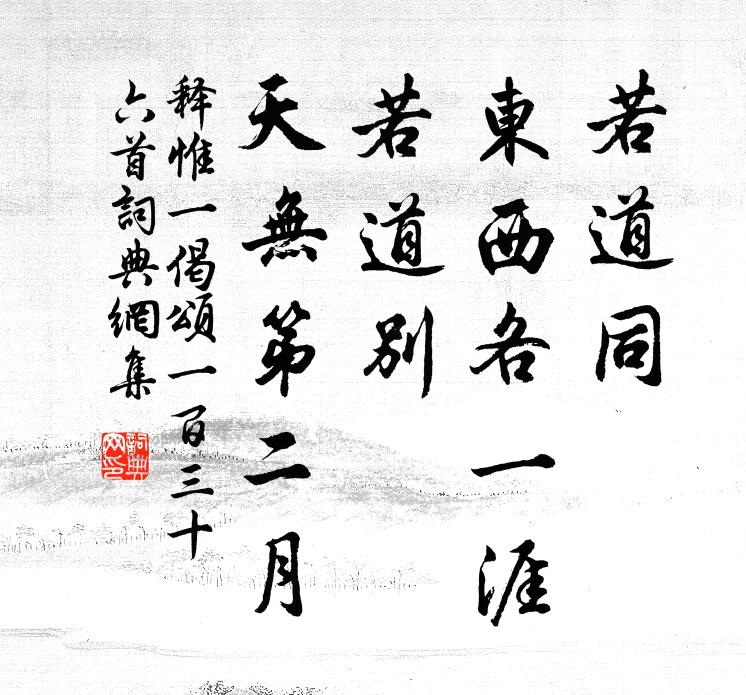 若道同
東西各一涯
若道別
天無第二月
释惟一偈頌一百三十
六首詞典網集
詞典
网印